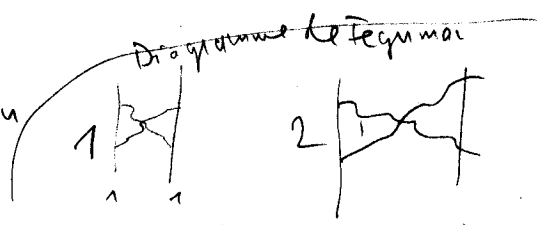 Diagramme de Feynman
1 2
1 1